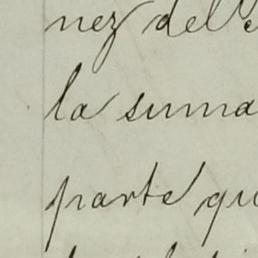 nez del
la suma
parte qu